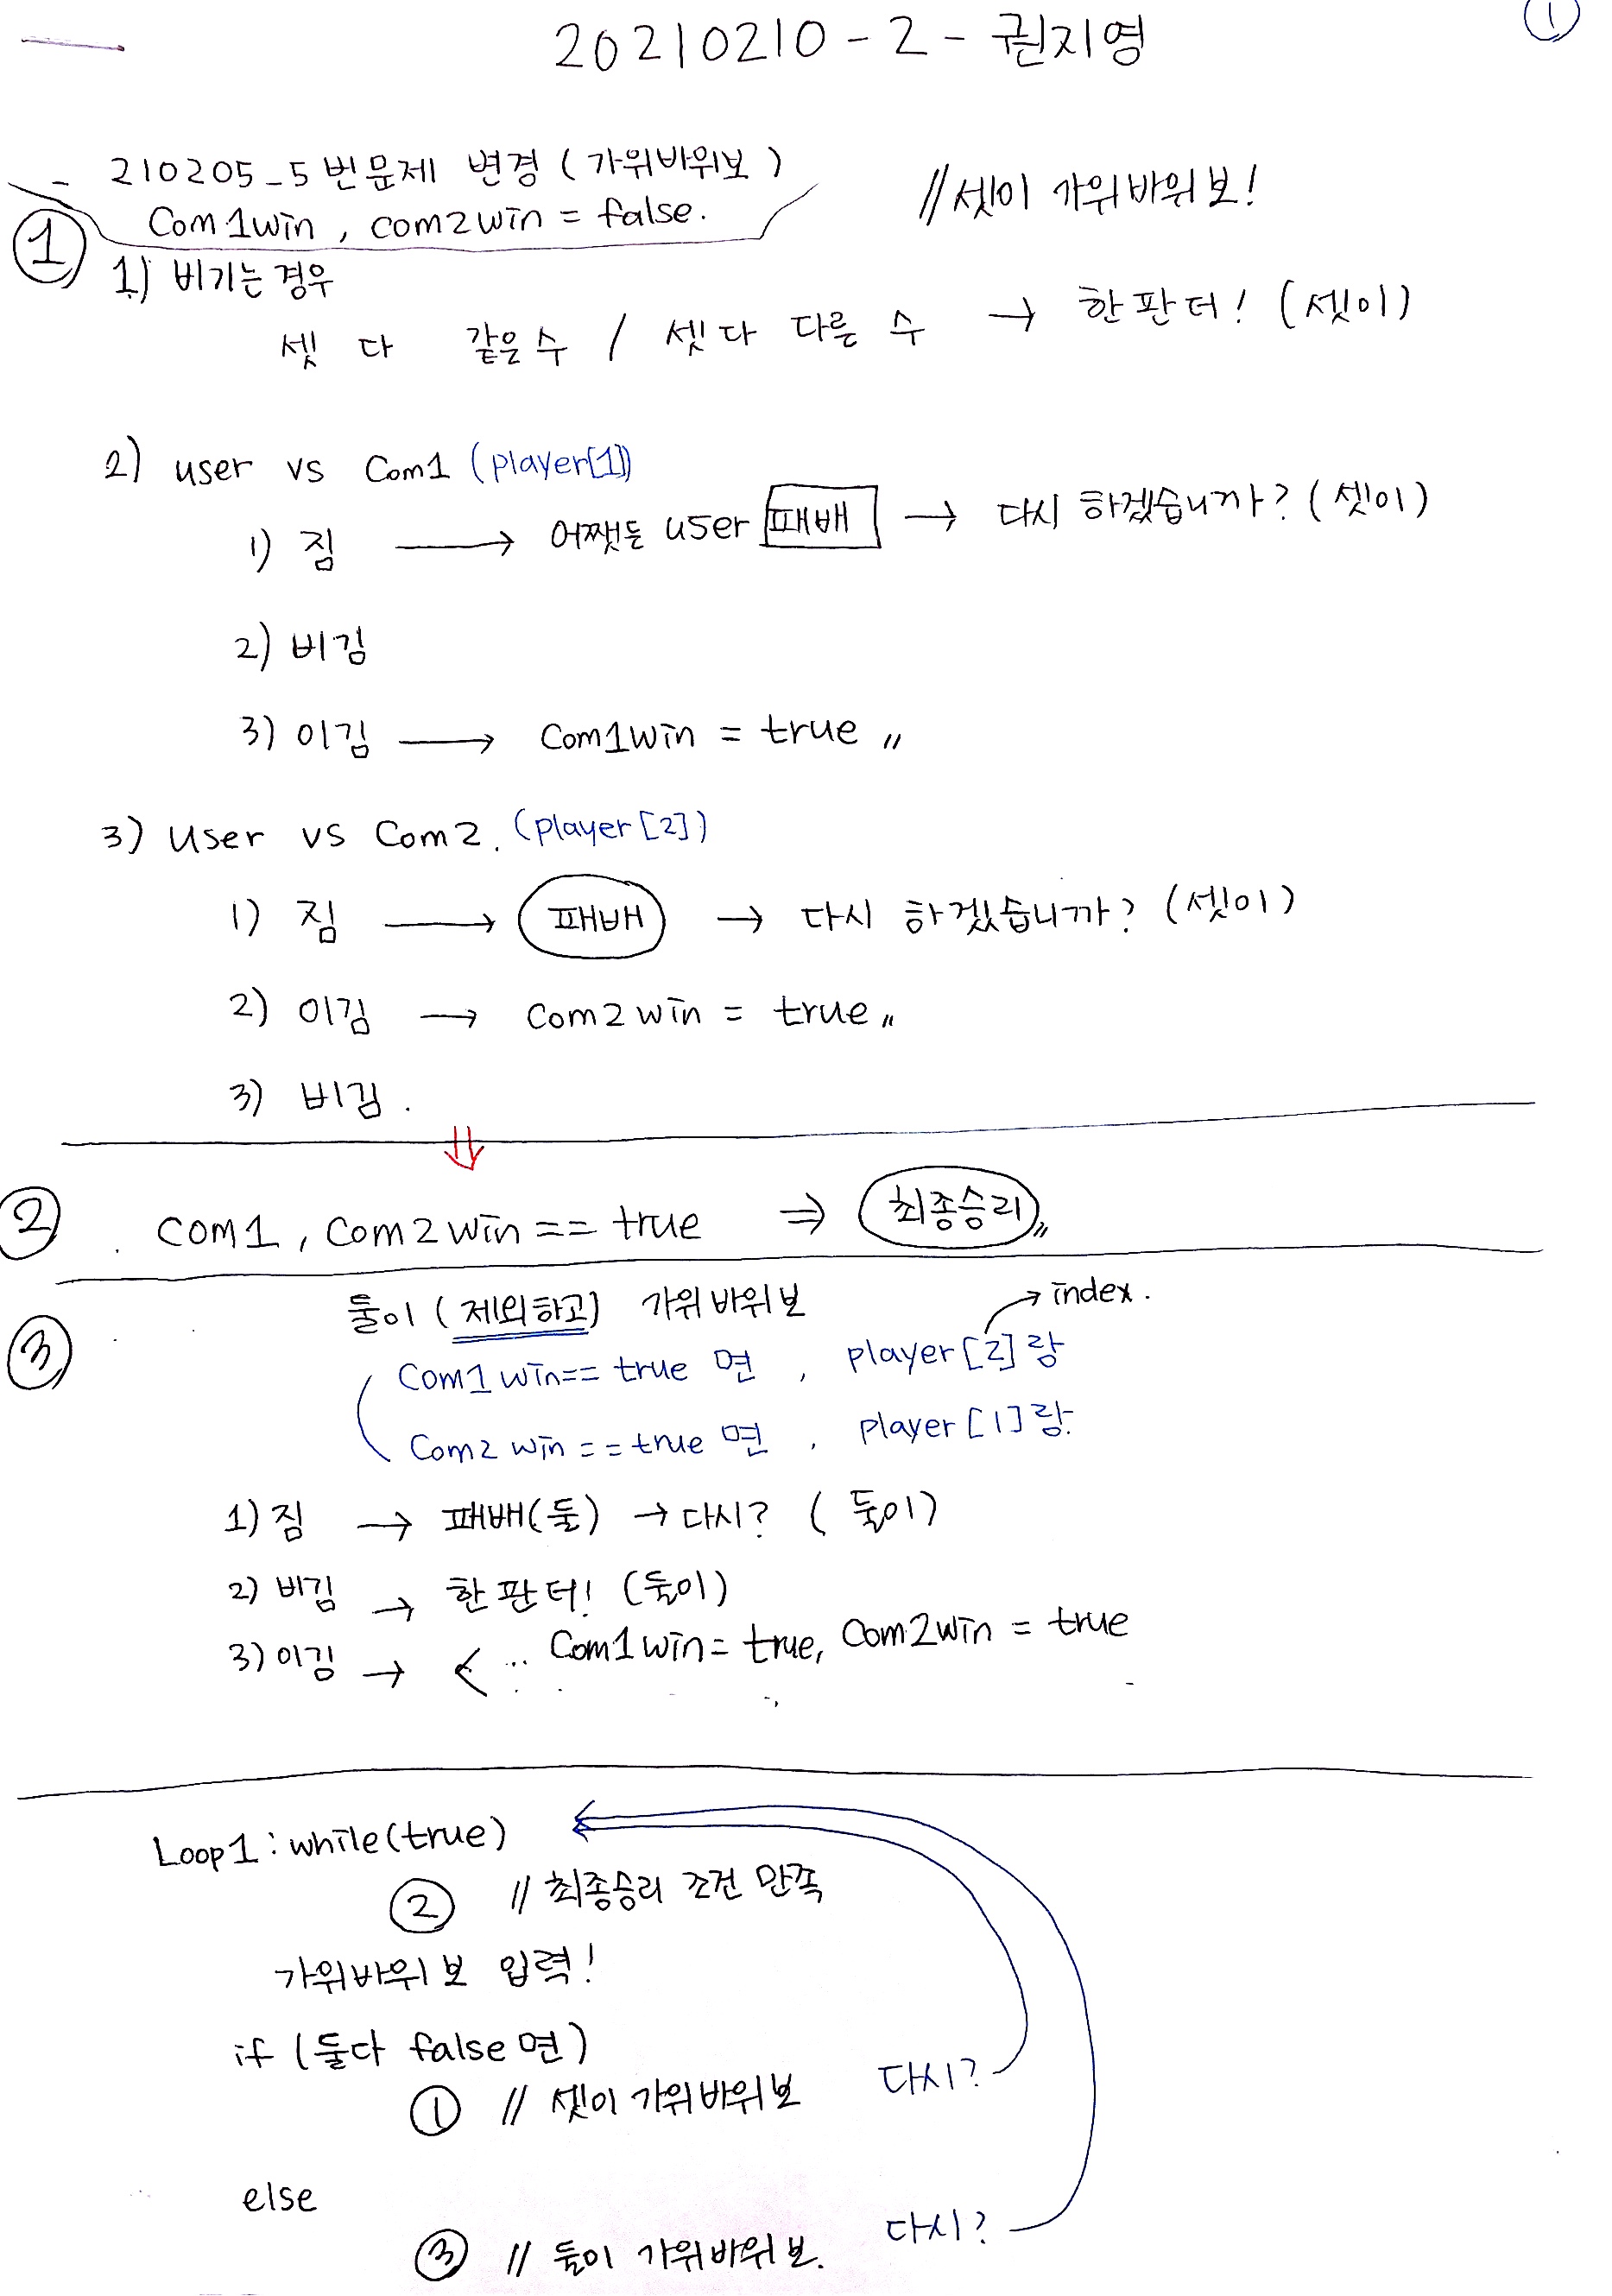 20210210-2-권지영
①
- 210205_5번문제 변경 (가위바위보)
Com1win, com2win = false.
//셋이 가위바위보!
①
1) 비기는경우
셋 다 같은수 / 셋다 다른 수 → 한판더! (셋이)
2) user vs Com1 (player[1])
1) 짐 → 어쨋든 user 패배 → 다시 하겠습니까? (셋이)
2) 비김
3) 이김 → Com1win = true 〃
3) user vs Com2. (player[2])
1) 짐 → 패배 → 다시 하겠습니까? (셋이)
2) 이김 → Com2win = true〃
3) 비김.
⇓
② com1, Com2win == true ⇒ 최종승리〃
③ 둘이 (제외하고) 가위바위보
→ index.
Com1win == true 면, player[2]랑
Com2win == true 면, player[1]랑.
1) 짐 → 패배(둘) → 다시? (둘이)
2) 비김 → 한판더! (둘이)
3) 이김 → < .. Com1win = true, Com2win = true
Loop1 : while(true)
② // 최종승리 조건 만족
가위바위보 입력!
if (둘다 false면)
① // 셋이 가위바위보 다시?
else
③ // 둘이 가위바위보. 다시?